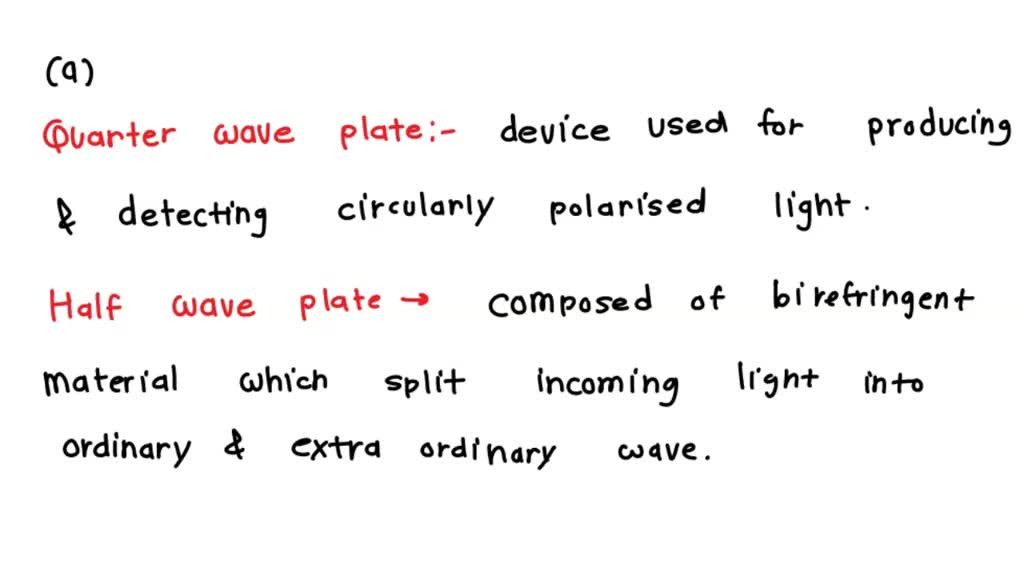 (a)
Quarter wave plate:- device used for producing
& detecting circularly polarised light.
Half wave plate → composed of birefringent
material which split incoming light into
ordinary & extra ordinary wave.